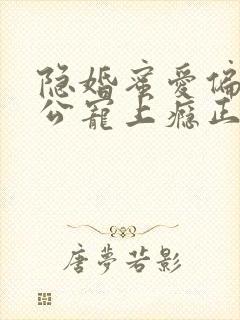 隐婚蜜爱偏
公宠上瘾正
唐梦若影